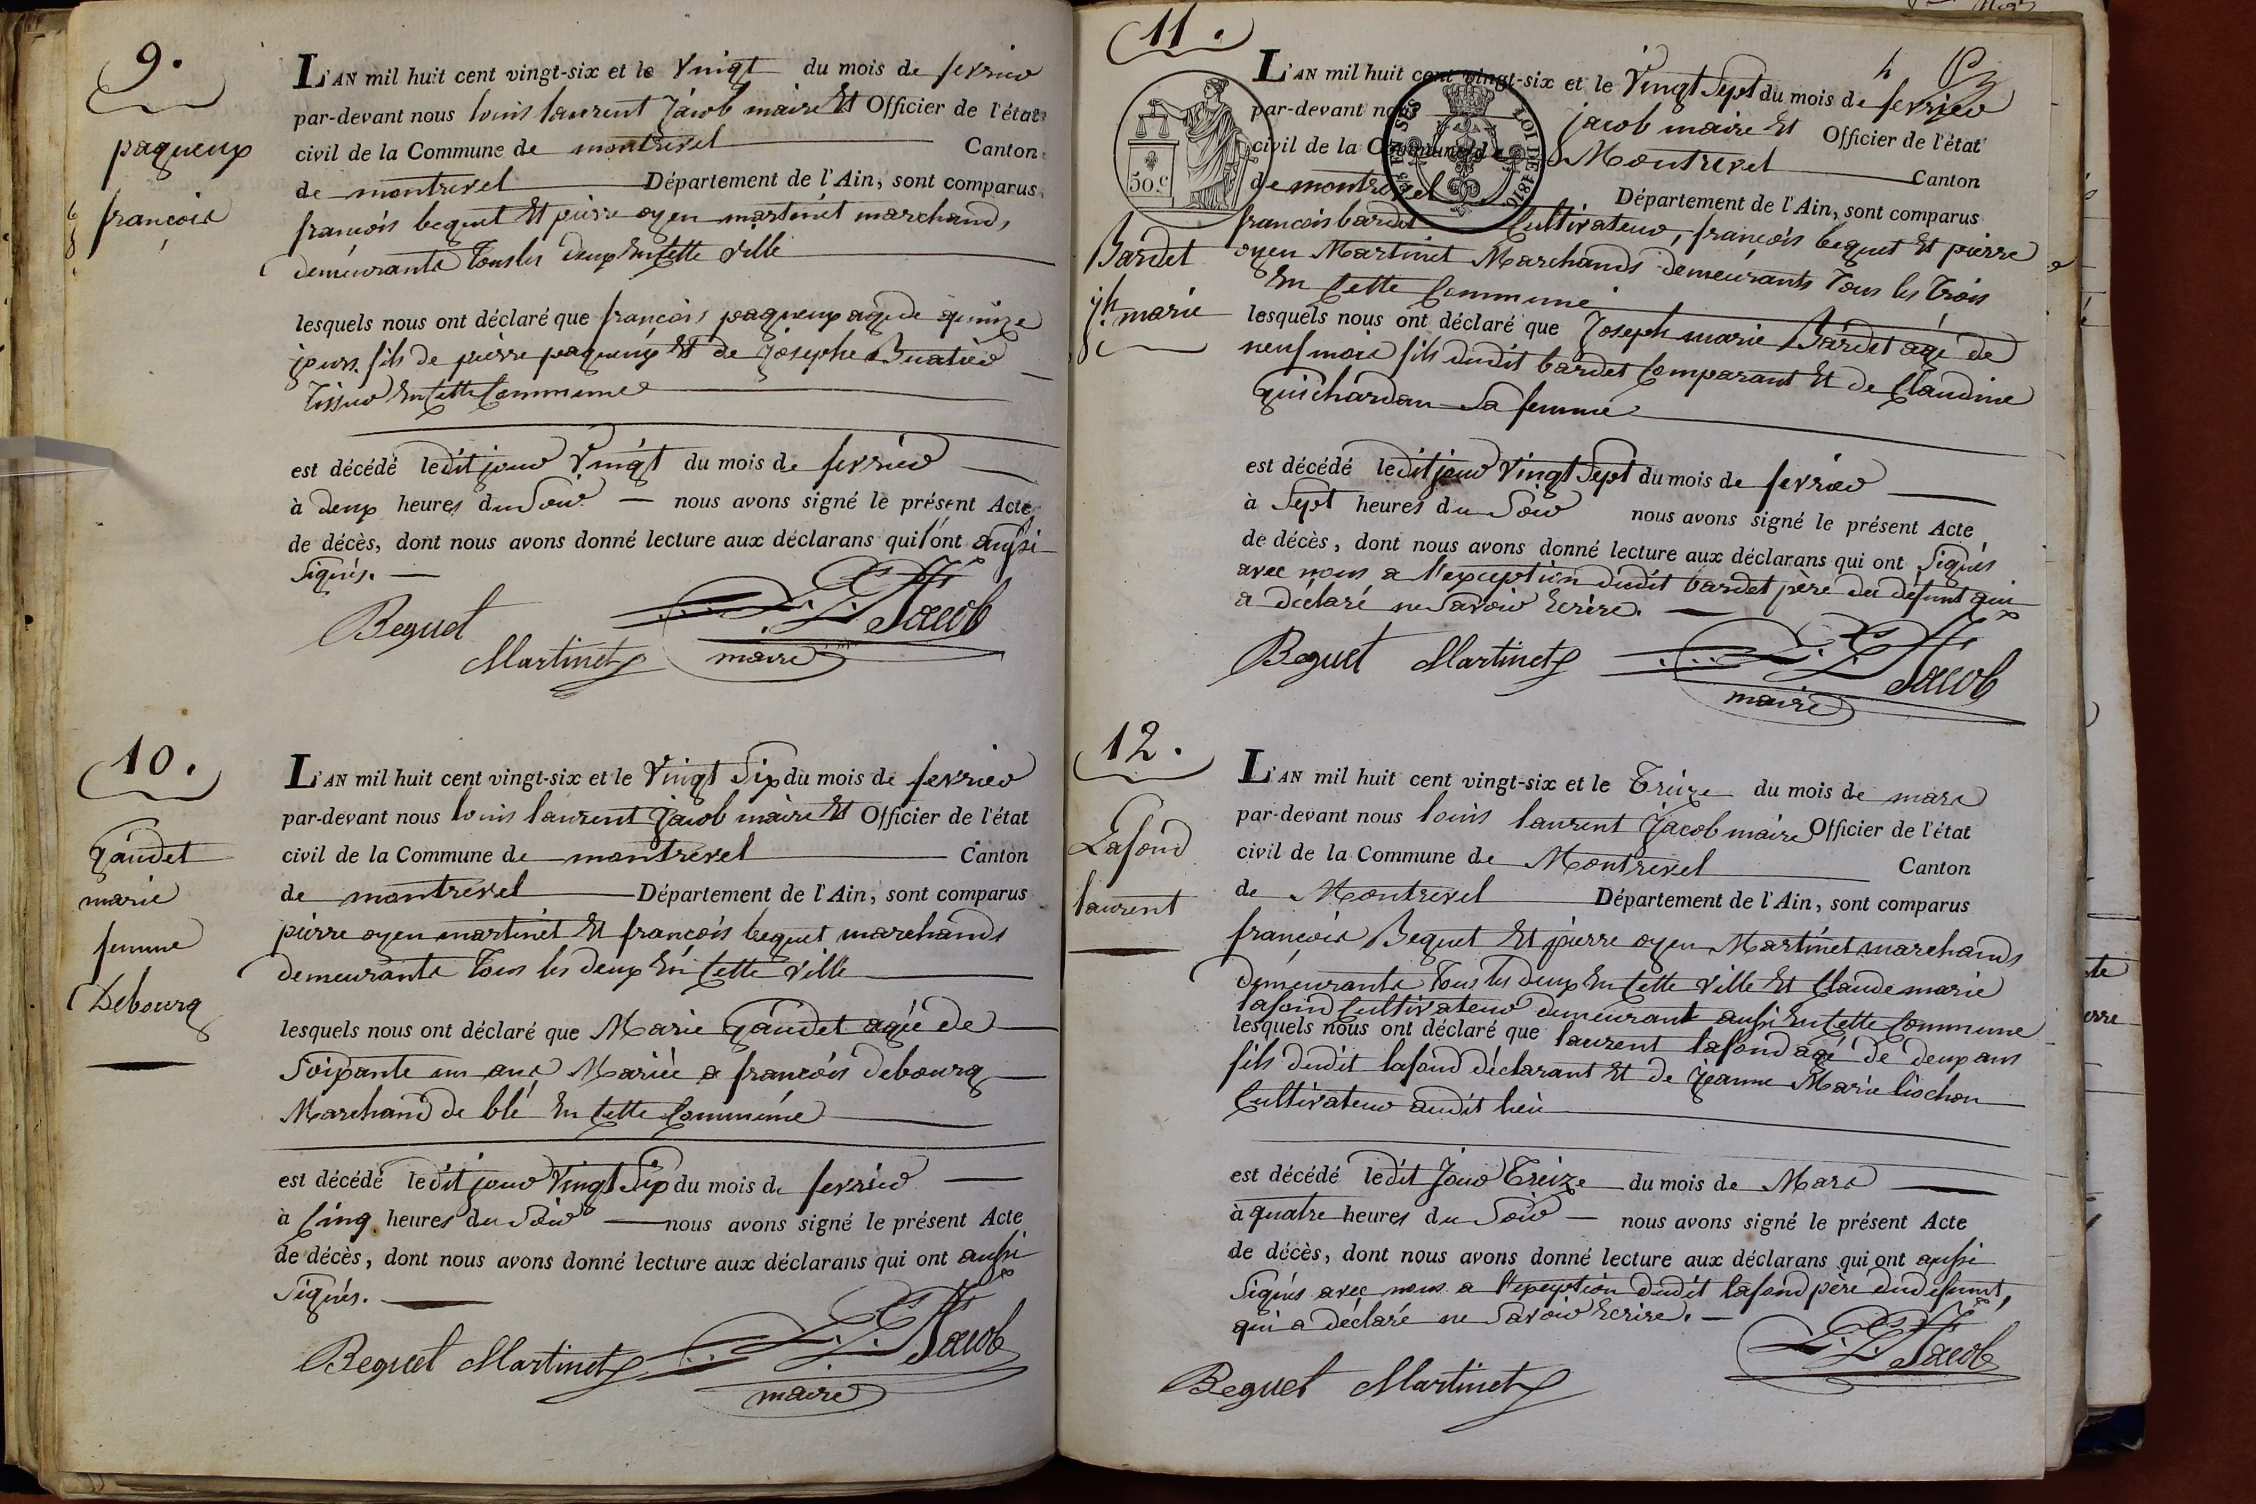 9.
paqueux
françois
L'AN mil huit cent vingt-six et le Vingt du mois de fevrier
par-devant nous louis laurent Jacob maire Et Officier de l'état
civil de la Commune de montrevel Canton
de montrevel Département de l'Ain, sont comparus
françois bequet Et pierre oyen martinet marchands
demeurants Tous les deux En Cette Ville
lesquels nous ont déclaré que françois paqueux agé de quinze
jours fils de pierre paqueux Et de Josephe Buatier
Tissier En Cette Commune
est décédé ledit jour Vingt du mois de fevrier
à deux heures du Soir nous avons signé le présent Acte
de décès, dont nous avons donné lecture aux déclarans qui l'ont aussi
Signés.
Bequet
L. L. Jacob
Martinet
maire
10.
Gaudet
marie
femme
Debourg
L'AN mil huit cent vingt-six et le Vingt Six du mois de fevrier
par-devant nous louis laurent Jacob maire Et Officier de l'état
civil de la Commune de montrevel Canton
de montrevel Département de l'Ain, sont comparus
pierre oyen martinet Et françois bequet marchands
demeurants Tous les deux En Cette Ville
lesquels nous ont déclaré que Marie Gaudet agée de
Soixante un ans Mariée a françois debourg
Marchand de blé En Cette Commune
est décédé ledit jour Vingt Six du mois de fevrier
à Cinq heures du Soir nous avons signé le présent Acte
de décès, dont nous avons donné lecture aux déclarans qui ont aussi
Signés.
Bequet Martinet L. L. Jacob
maire
11.
Bardet
jh. marie
50 c
LOI DE 1816
L'AN mil huit cent vingt-six et le Vingt Sept du mois de fevrier
par-devant nous jacob maire Et Officier de l'état
civil de la Commune de Montrevel Canton
de montrevel Département de l'Ain, sont comparus
francois bardet Cultivateur, françois bequet Et pierre
oyen Martinet Marchands demeurants Tous les Trois
En Cette Commune
lesquels nous ont déclaré que Joseph marie Bardet agé de
neuf mois fils dudit bardet Comparant Et de Claudine
guichardan Sa femme
est décédé ledit jour Vingt Sept du mois de fevrier
à Sept heures du Soir nous avons signé le présent Acte
de décès, dont nous avons donné lecture aux déclarans qui ont Signés
avec nous a l'exception dudit bardet père du défunt qui
a déclaré ne Savoir Ecrire.
Bequet Martinet L. L. Jacob
maire
12.
Lafond
laurent
L'AN mil huit cent vingt-six et le Treize du mois de mars
par-devant nous louis laurent Jacob maire Officier de l'état
civil de la Commune de Montrevel Canton
de Montrevel Département de l'Ain, sont comparus
françois Bequet Et pierre oyen Martinet marchands
demeurants Tous les deux En Cette Ville Et Claude marie
lafond Cultivateur demeurant aussi En Cette Commune
lesquels nous ont déclaré que laurent lafond agé de deux ans
fils dudit lafond déclarant Et de Jeanne Marie liochon
Cultivateur audit lieu
est décédé ledit Jour Treize du mois de Mars
à quatre heures du Soir nous avons signé le présent Acte
de décès, dont nous avons donné lecture aux déclarans qui ont aussi
Signés avec nous a l'exception dudit lafond père du défunt,
qui a déclaré ne Savoir Ecrire.
L. L. Jacob
Bequet Martinet